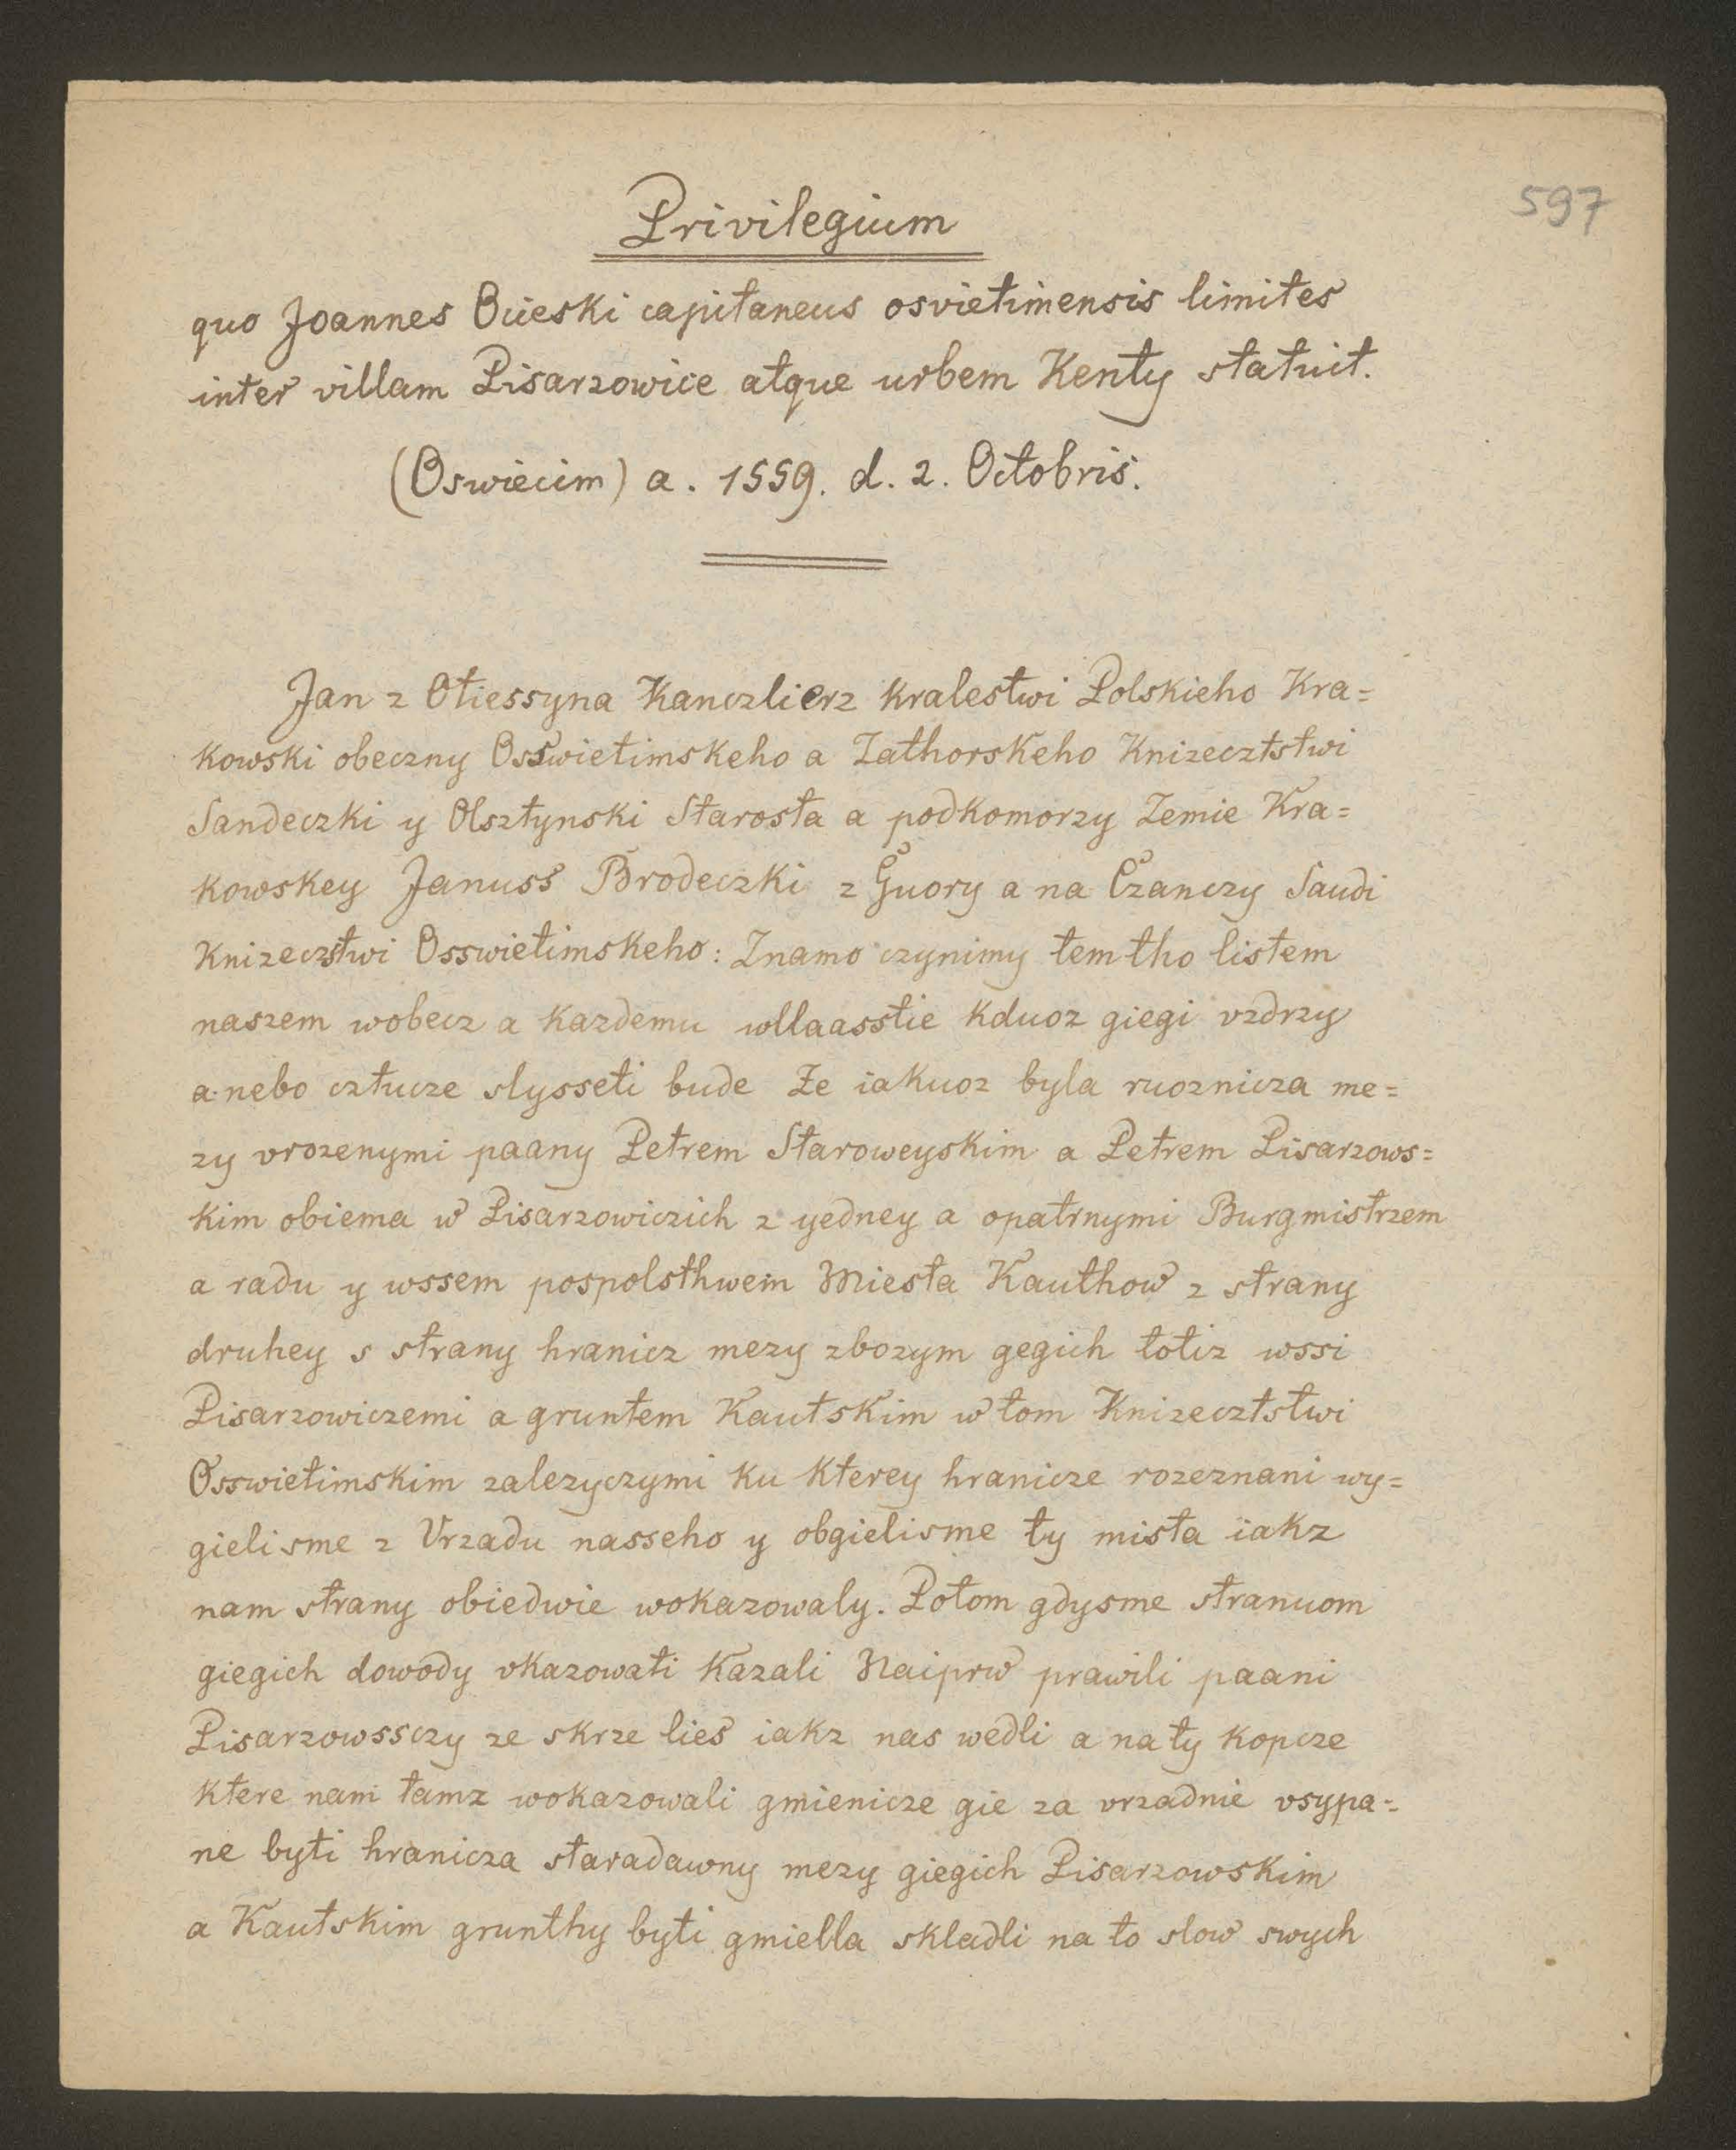 597
Privilegium
quo Joannes Ocieski capitaneus osvietimensis limites
inter villam Pisarzowice atque urbem Kenty statuit.
(Oswiecim) a. 1559. d. 2. Octobris.
Jan z Otiessyna Kanczlierz kralestwi Polskieho Kra=
kowski obeczny Osswietimskeho a Zathorskeho Knizecztstwi
Sandeczki y Olsztynski Starosta a podkomorzy Zemie Kra=
kowskey Januss Brodeczki z Guory a na Czanczy Saudi
Knizeczstwi Osswietimskeho: Znamo czynimy temtho listem
naszem wobecz a kazdemu wllaasstie kduoz giegi vzdrzy
a nebo cztucze slysseti bude Ze iakuoz byla ruoznicza me=
zy vrozenymi paany Petrem Staroweyskim a Petrem Pisarzows=
kim obiema w Pisarzowiczich z yedney a opatrnymi Burgmistrzem
a radu y wssem pospolsthwem Miesta Kauthow z strany
druhey s strany hranicz mezy zbozym gegich totiz wssi
Pisarzowiczemi a gruntem Kautskim w tom Knizecztstwi
Osswietimskim zalezyczymi ku kterey hranicze rozeznani wy=
gieli sme z Vrzadu nasseho y obgielisme ty mista iakz
nam strany obiedwie wokazowaly. Potom gdysme stranuom
giegich dowody vkazowati kazali Naiprw prawili paani
Pisarzowssczy ze skrze lies iakz nas wedli a na ty kopcze
ktere nam tamz wokazowali gmienicze gie za vrzadnie vsypa=
ne byti hranicza staradawny mezy giegich Pisarzowskim
a Kautskim grunthy byti gmiella skladli na to slow swych